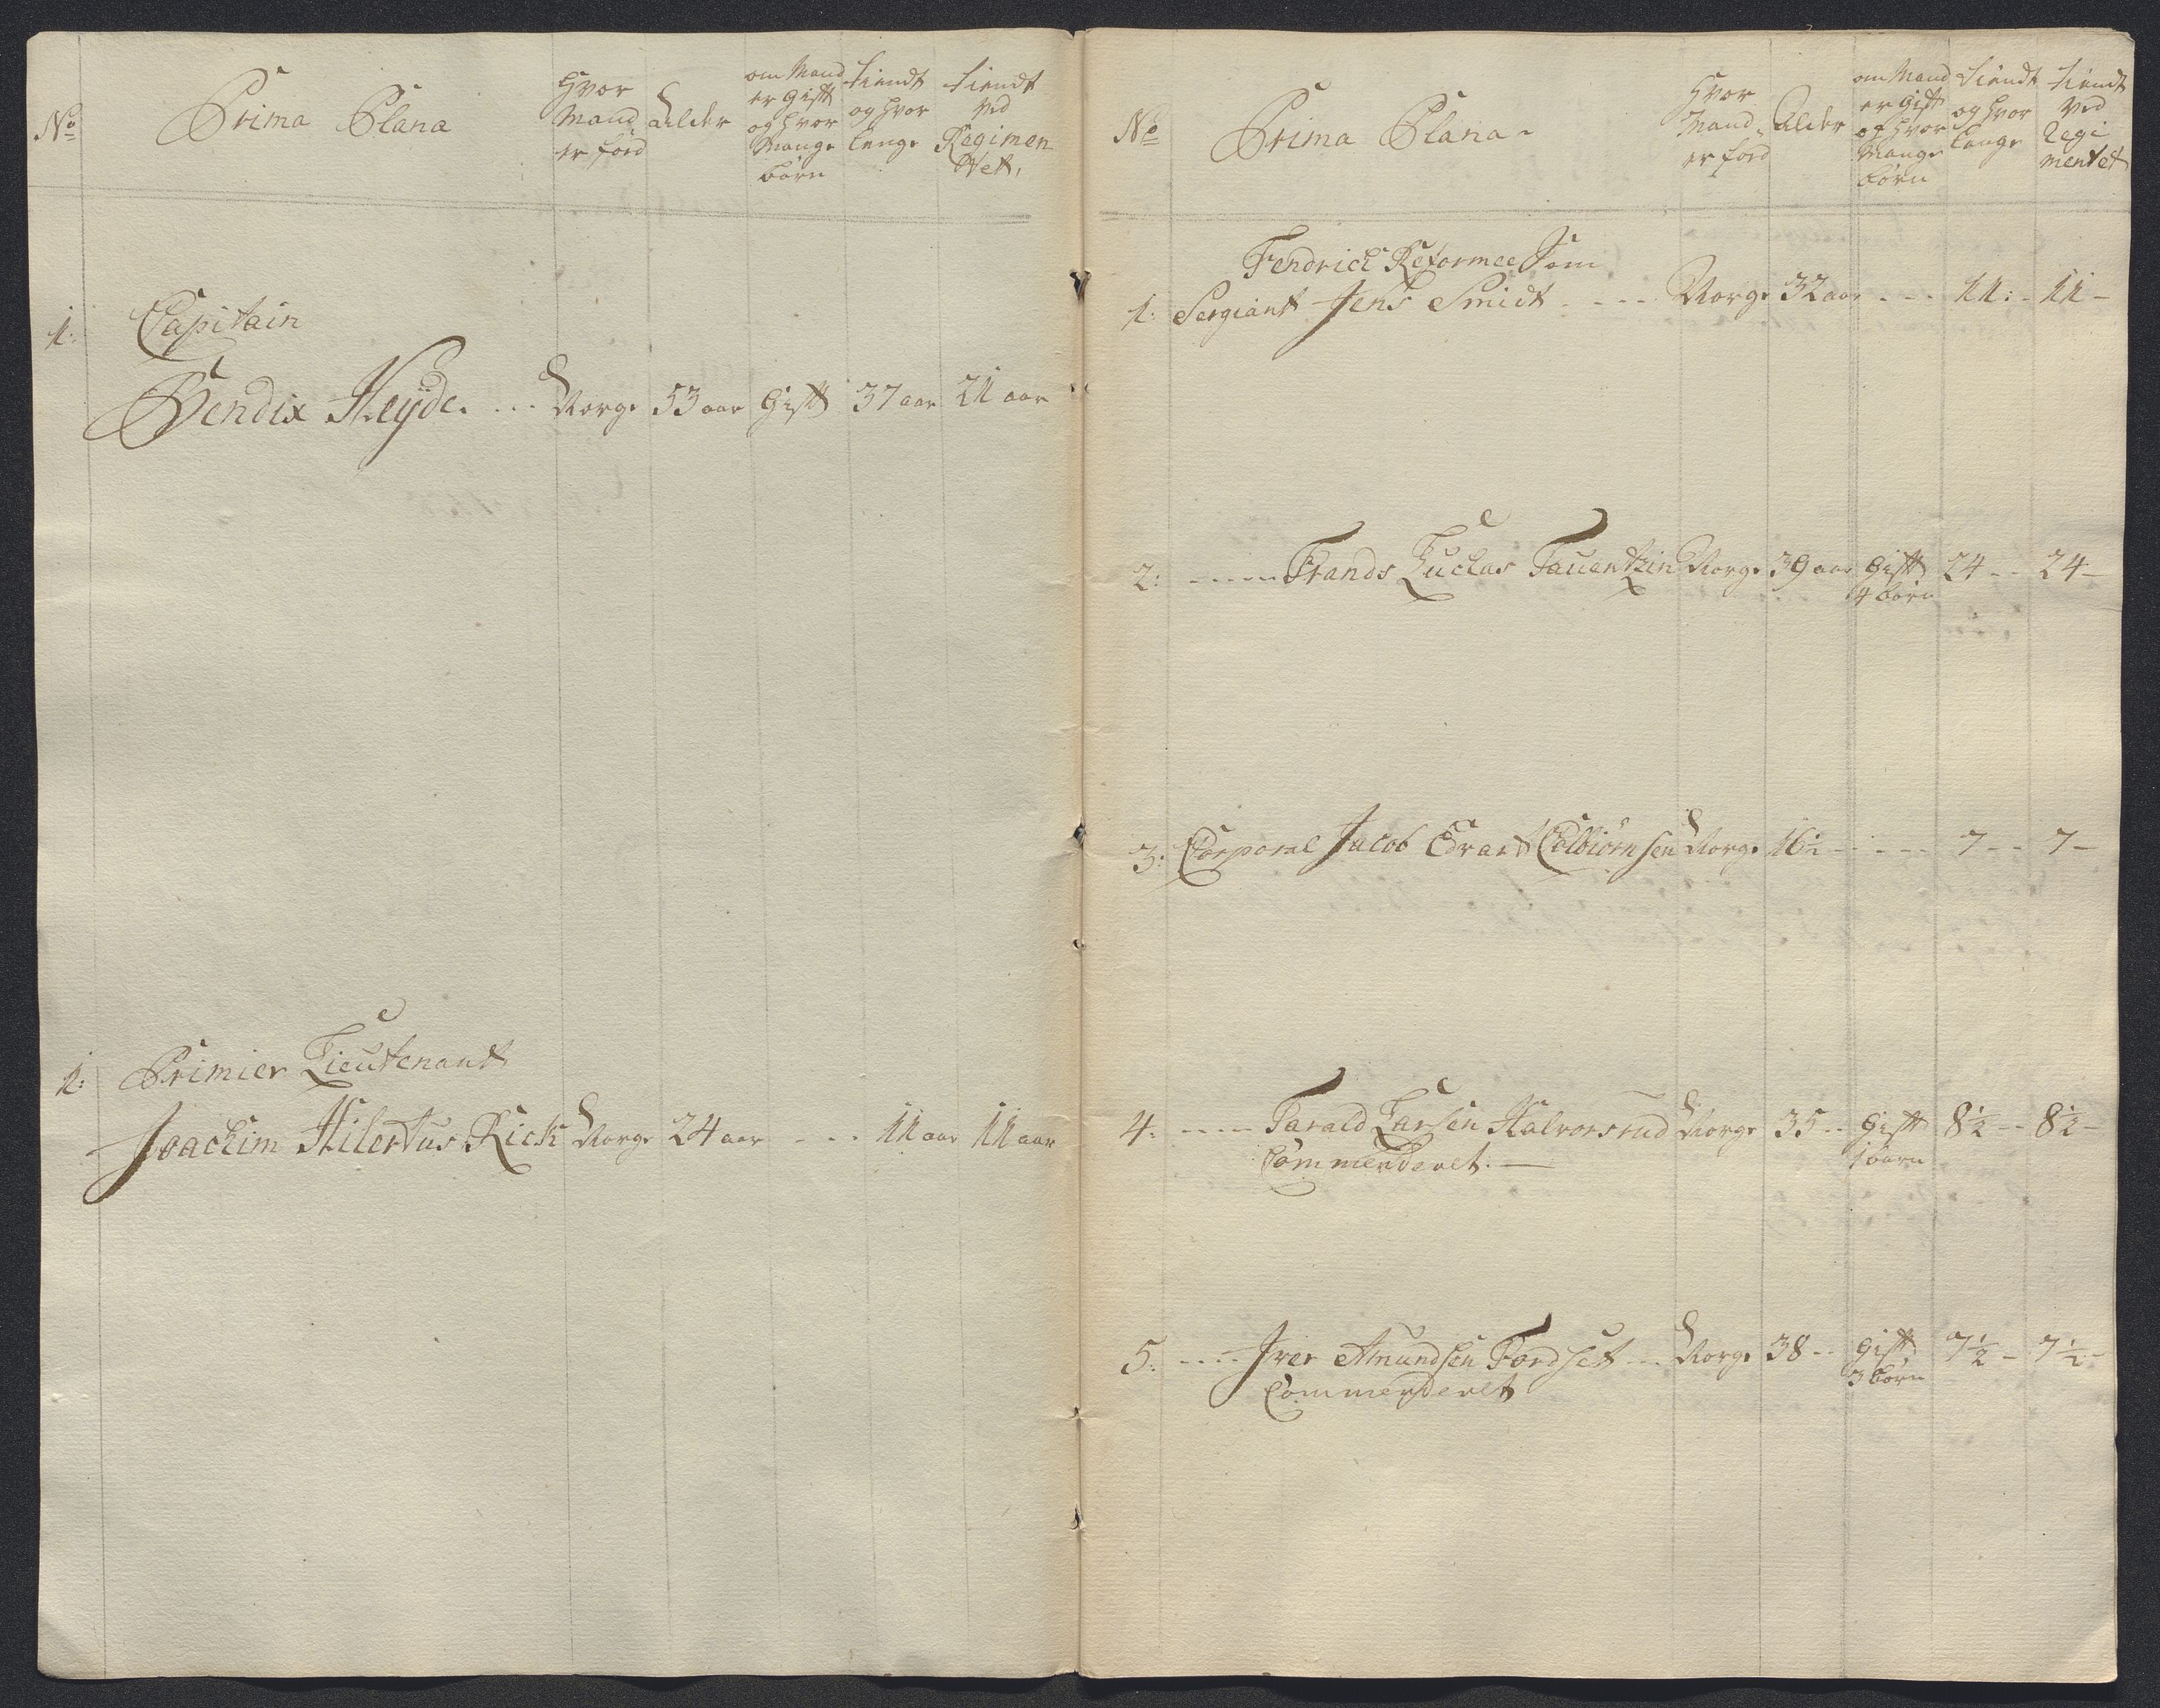 No
Prima Plana
Hvor Mand er föd
alder
om Mand er Gift og hvor Mange börn
tiendt og hvor lenge
tiendt ved Regimentet
1: Capitain
Bendix Heyde. ... Norge 53 aar Gift 37 aar 21 aar
1: Primier Lieutenant
Joachim Hilertus Rick Norge 24 aar - - - 11 aar 11 aar
No
Prima Plana
Hvor Mand er föd
Alder
om Mand er gift og hvor Mange börn
tiendt og hvor Lange
tiendt ved Regimentet
Fendrich Reformee Som
1: Sergiant Jens Smidt - - - - Norge 32 aar - - - 11: - 11 -
2: ------- Frands Luckas Tauentzin Norge 39 aar Gift 24 - - 24 -
4 börn
3: Corporal Jacob Edvart Colbiörnsen Norge 16½ - - - - - 7 - - 7 -
4: ----- Tarald Larsen Halvorsrud Norge 35 - - Gift 8½ - - 8½ -
Commenderet. — 1 barn
5: ---- Iver Amundsen Fordset - - Norge 38 - - Gift 7½ - 7½ -
Commenderet 3 börn